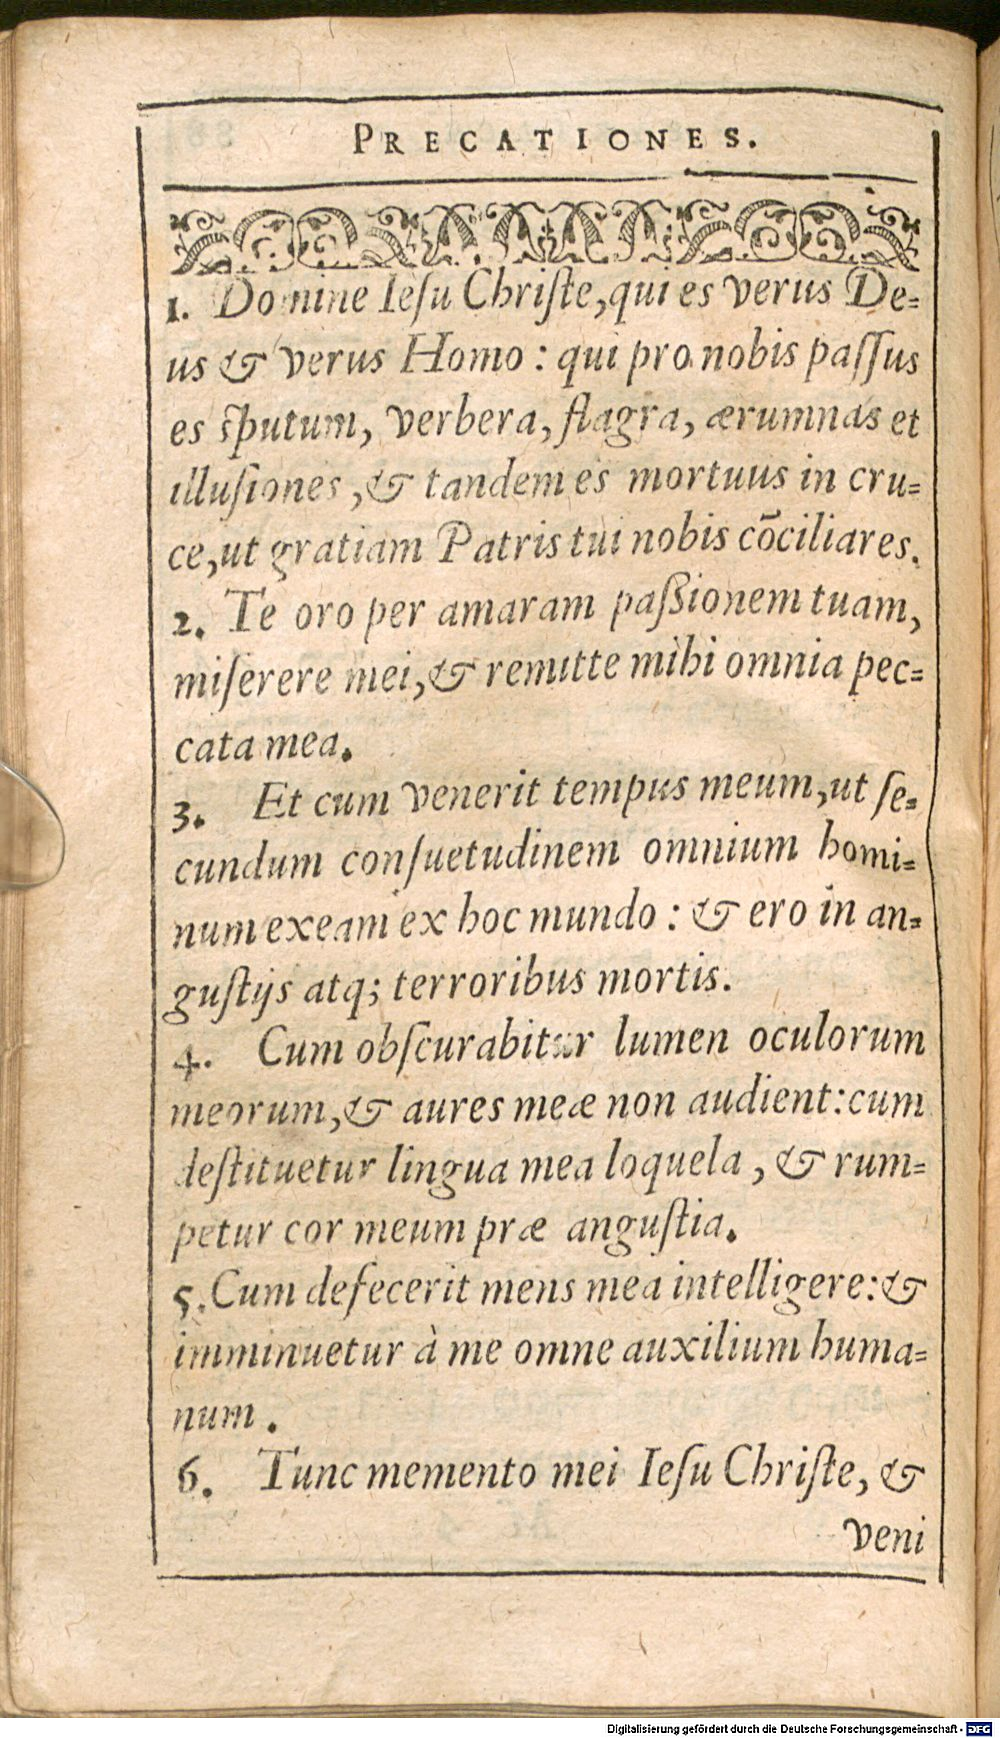 PRECATIONES.
1. Domine Iesu Christe, qui es verus De-
us & verus Homo : qui pro nobis passus
es sputum, verbera, flagra, ærumnas et
illusiones, & tandem es mortuus in cru-
ce, ut gratiam Patris tui nobis cōciliares.
2. Te oro per amaram paßionem tuam,
miserere mei, & remitte mihi omnia pec-
cata mea.
3. Et cum venerit tempus meum, ut se-
cundum consuetudinem omnium homi-
num exeam ex hoc mundo : & ero in an-
gustijs atq; terroribus mortis.
4. Cum obscurabitur lumen oculorum
meorum, & aures meæ non audient: cum
destituetur lingua mea loquela, & rum-
petur cor meum præ angustia.
5. Cum defecerit mens mea intelligere: &
imminuetur à me omne auxilium huma-
num.
6. Tunc memento mei Iesu Christe, &
veni
Digitalisierung gefördert durch die Deutsche Forschungsgemeinschaft - DFG